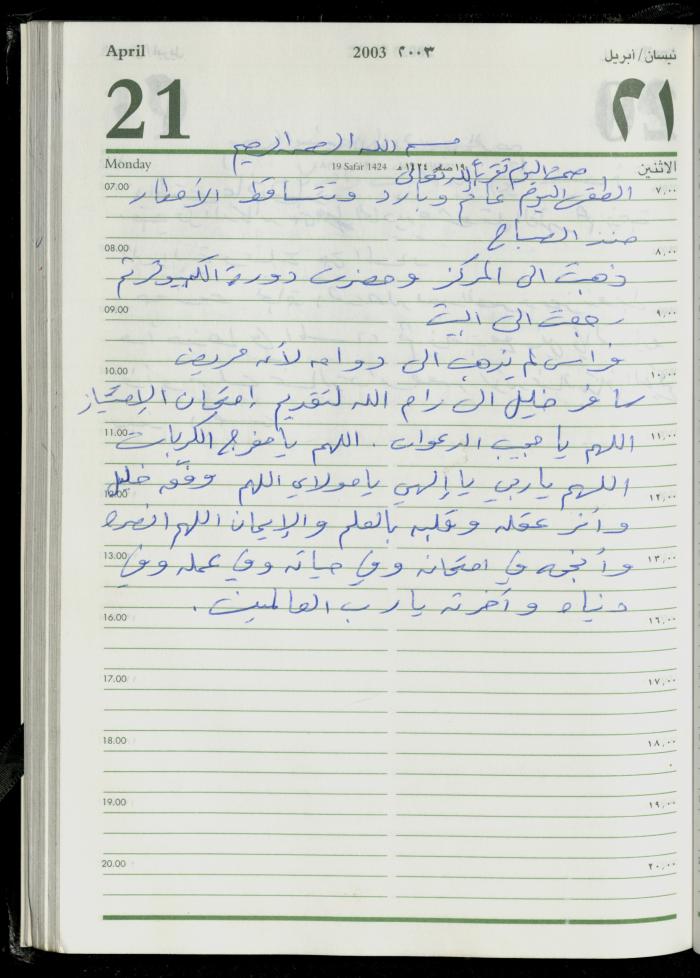 April 2003 ٢٠٠٣ نيسان/أبريل
21 ٢١
بسم الله الرحمن الرحيم
Monday 19 Safar 1424 ١٩ صفر ١٤٢٤ هـ الاثنين
صمت اليوم تقرباً لله تعالى
07.00 الطقس اليوم غائم وبارد وتتساقط الأمطار ٧,٠٠
منذ الصباح
08.00 ٨,٠٠
ذهبت الى المركز وحضرت دورة الكمبيوتر ثم
09.00 رجعت الى البيت ٩,٠٠
فراس لم يذهب الى دوامه لأنه مريض
10.00 ١٠,٠٠
سافر خليل الى رام الله لتقديم إمتحان الإمتياز
11.00 اللهم يا مجيب الدعوات . اللهم يا مفرج الكربات ١١,٠٠
اللهم يا ربي يا إلهي يا مولاي اللهم وفّق خليل
12.00 ١٢,٠٠
وأنر عقله وقلبه بالعلم والإيمان اللهم انصره
13.00 وأنجحه في امتحانه وفي حياته وفي عمله وفي ١٣,٠٠
دنياه وآخرته يا رب العالمين .
16.00 ١٦,٠٠
17.00 ١٧,٠٠
18.00 ١٨,٠٠
19.00 ١٩,٠٠
20.00 ٢٠,٠٠